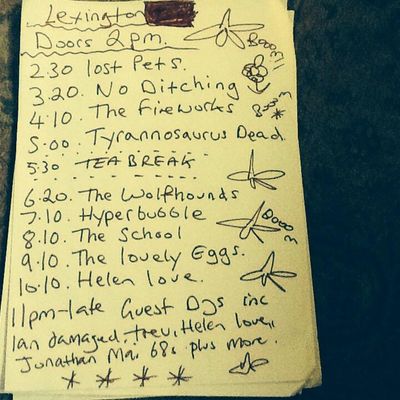 Lexington
Doors 2pm.
BOOM!!
2.30 Lost Pets.
3.20. No Ditching
4.10. The Fireworks
5.00. Tyrannosaurus Dead.
5.30 TEA BREAK
6.20. The Wolfhounds
7.10. Hyperbubble
BOOOM
8.10. The School
9.10. The Lovely Eggs.
10.10. Helen Love.
11pm-late Guest DJs inc
Ian damaged, Trev, Helen Love,
Jonathan 68s plus more.